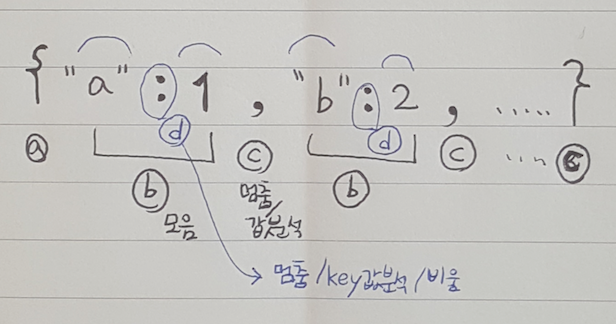 { "a" : 1 , "b" : 2 , ..... }
ⓐ ⓓ ⓒ ⓓ ⓒ ....
ⓑ 멈춤/ ⓑ
모음 값분석
멈춤/key값분석/비움